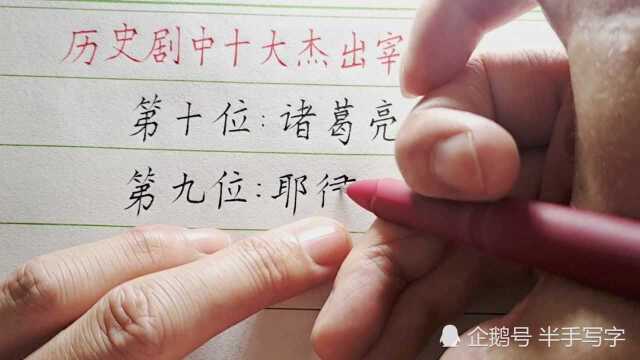 历史剧中十大杰出宰
第十位：诸葛亮
第九位：耶
企鹅号 半手写字